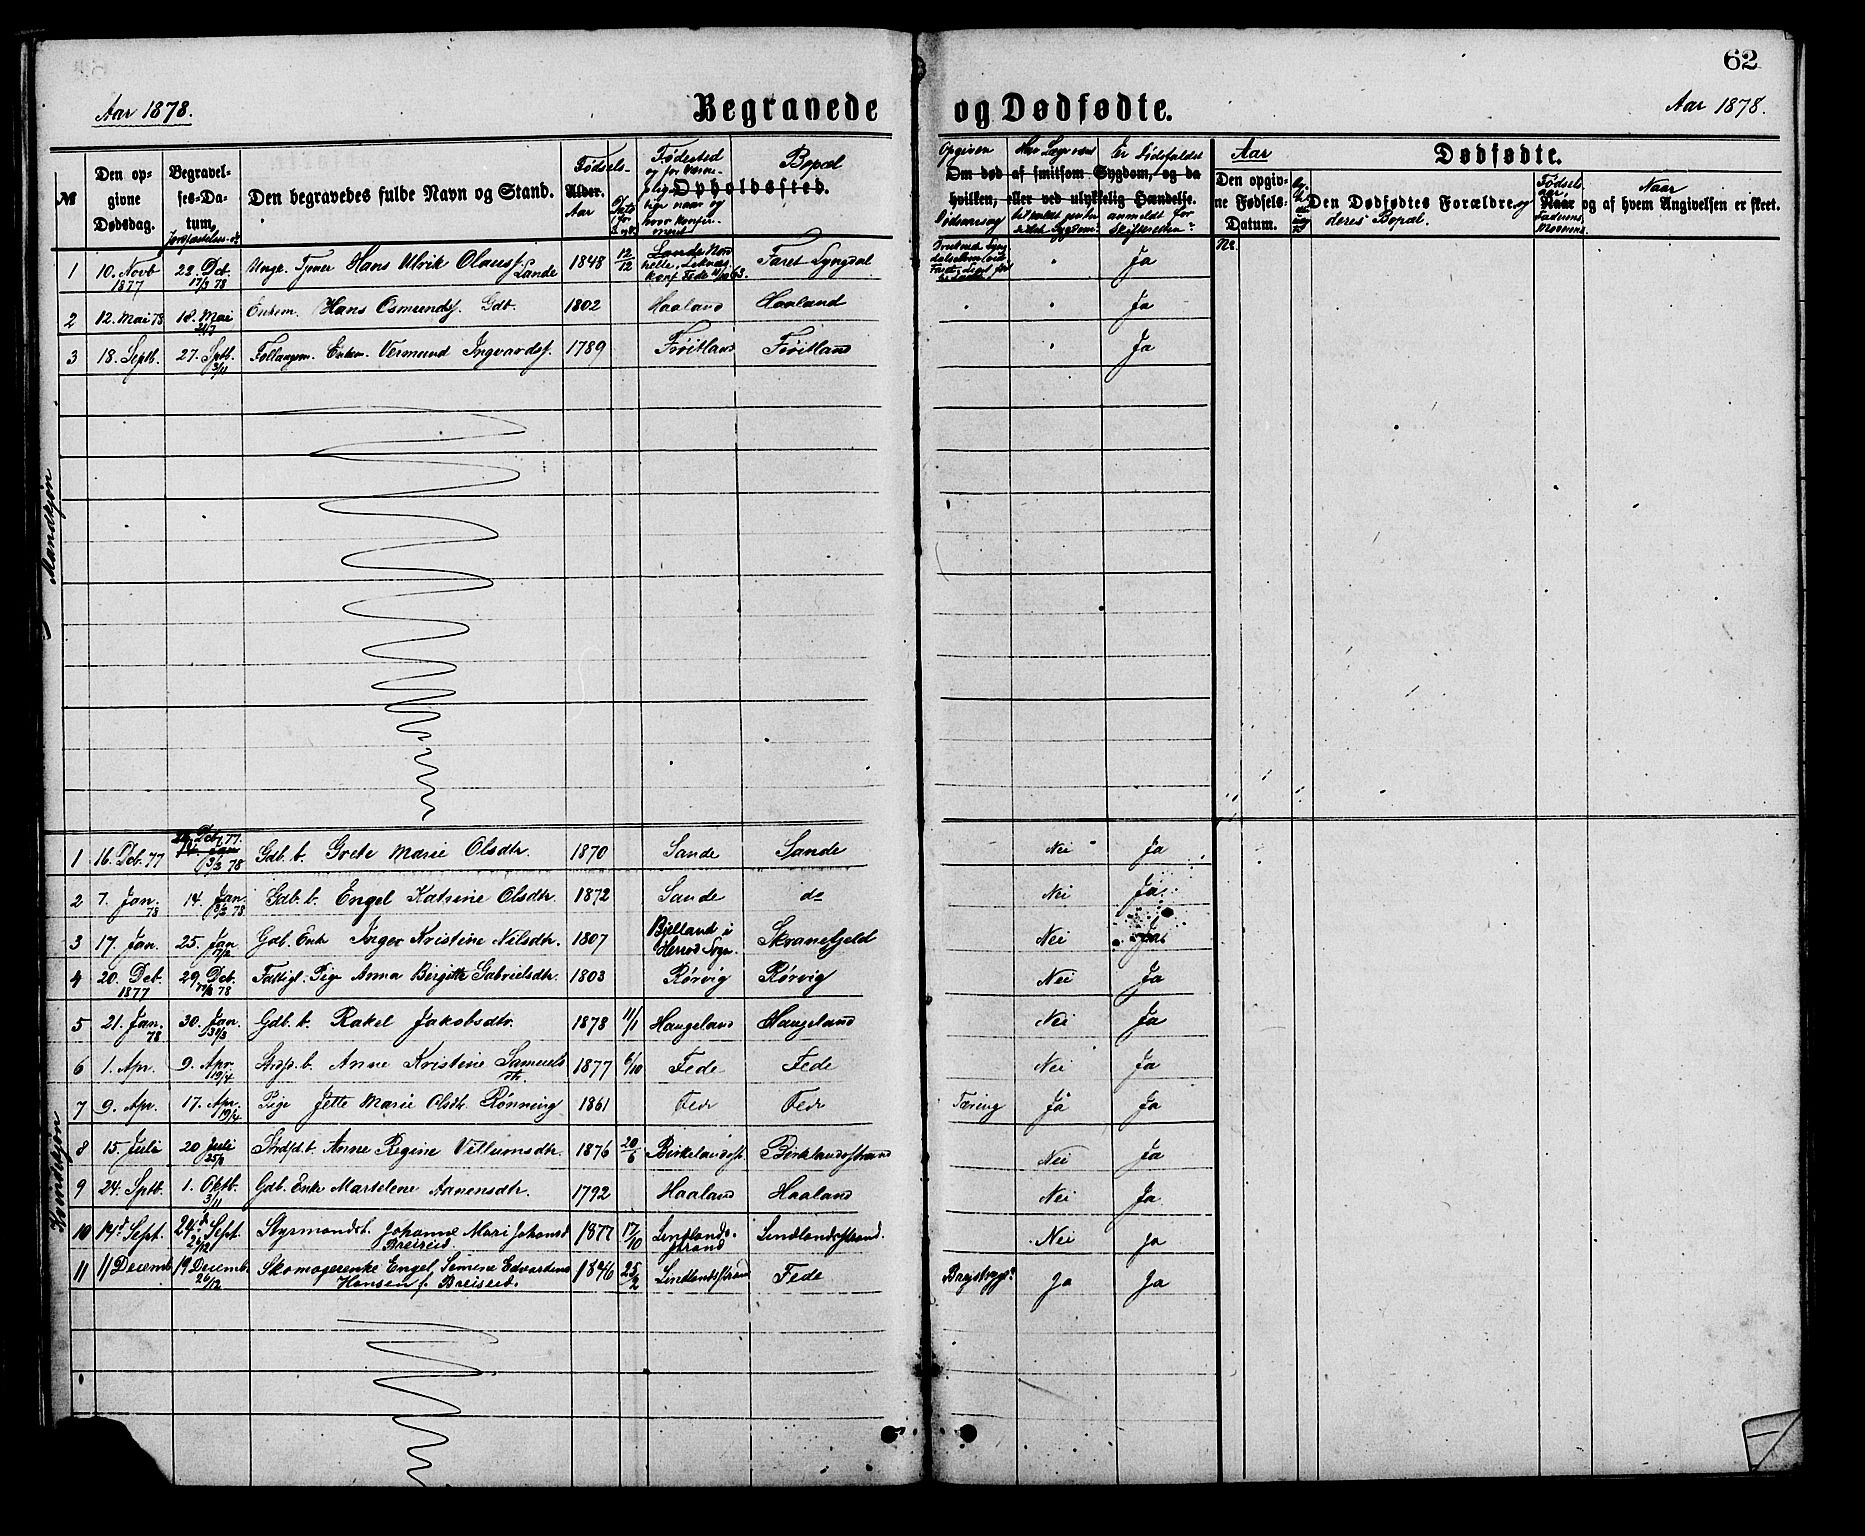 62
Aar 1878. Begravede og Dødfødte. Aar 1878.
№ Den opgivne Dødsdag. Begravelses-Datum, Jordfæstelses-d: Den begravedes fulde Navn og Stand. Fødsels- Alder. Aar Dato Fødested Bopæl Opholdssted.
Opgiven Dødsaarsag Har Læge Er Dødsfaldet anmeldt for Skifteretten?
Om død af smitsom Sygdom, og da hvilken, eller ved ulykkelig Hændelse.
Aar Dødfødte.
Den opgivne Fødsels-Datum. Den Dødfødtes Forældre og deres Bopæl. Fødselsaar, Faderens, Moderens Naar og af hvem Angivelsen er skeet.
Mandkjøn
1 10. Novb 1877 22. Dcb. 17/3 78 Ungk. Tjener Hans Ulrik Olaussf. Lande 1848 12/12 Faret Lyngdal Ja
2 12. Mai 78 18. Mai 21/7 Enkem. Hans Osmundsf. Gdb. 1802 Haaland Haaland Ja
3 18. Septb. 27. Sptb. 3/11 Følgaugsm. Enkem. Vermund Ingvardsf. 1789 Frøitland Frøitland Ja
Kvindekjøn
1 16. Dcb. 77 Dcb. 77. 3/2 78 Gdb. b. Grete Marie Olsdtr. 1870 Sande Sande Nei Ja
2 7. Jan. 78 14. Jan. 3/2 78 Gdb. b. Engel Katrine Olsdtr. 1872 Sande do Nei Ja
3 17. Jan. 25. Jan. Gdb. Enke Inger Kristine Nilsdtr. 1807 Bjelland i Herred Sogn. Skranefjeld Nei Ja
4 20. Dcb. 1877 29. Dcb. 78 Fattigl. Pige Anna Birgitte Gabrielsdtr. 1803 Rørvig Rørvig Nei Ja
5 21. Jan. 78 30. Jan. 31/3 Gdb. b. Rakel Jakobsdtr. 1878 11/1 Haugeland Haugeland Nei Ja
6 1. Apr. 9. Apr. 19/4 Strdsd. b. Anne Kristine Samuelsdtr. 1877 6/10 Fede Fede Nei Ja
7 9. Apr. 17. Apr. 19/4 Pige Jette Marie Olsdtr. Rønning 1861 Fede Fede Tæring Ja Ja
8 15. Juli 20 Juli 25/8 Strdsd. b. Anne Regine Villumsdtr. 1876 20/6 Birkelandsst. Birklandsstrand Nei Ja
9 24. Sptb. 1. Oktb. 3/11 Gdb. Enke Martelene Aanensdtr. 1792 Haaland Haaland Nei Ja
10 19d Sept. 24d Sept. 26/12 Styrmandsb. Johanne Mari Johansd Breiseid 1877 17/10 Lindlandsstrand Lindlandsstrand. Nei Ja
11 11 Decemb. 19 Decemb. 26/12 Skomagerenke Engel Simine Edvardine Hansen f. Breiseid. 1846 25/2 Lindlandsstrand Fede Brystsyge? Ja Ja